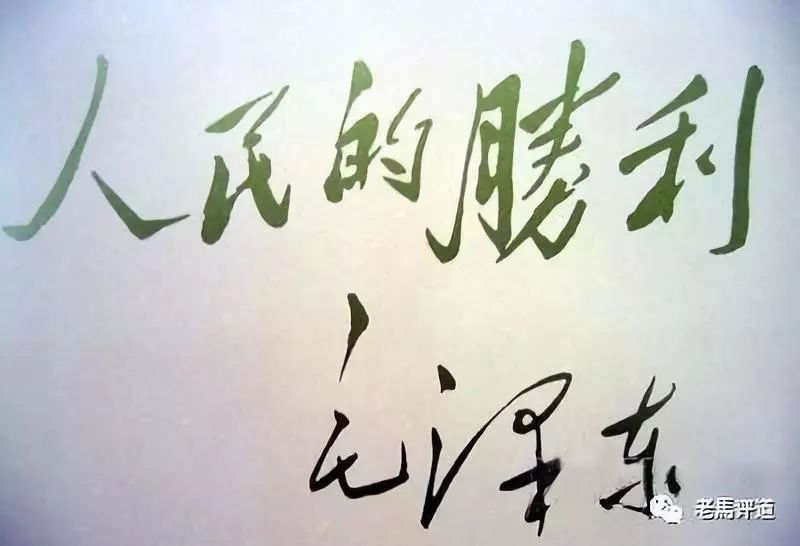 人民的勝利
毛泽东
老馬评道